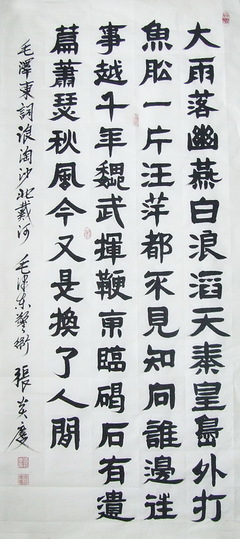 大雨落幽燕白浪滔天秦皇島外打
魚舩一片汪洋都不見知向誰邊往
事越千年魏武揮鞭東臨碣石有遺
篇蕭瑟秋風今又是換了人間
毛澤東詞浪淘沙北戴河 毛澤東 張炎